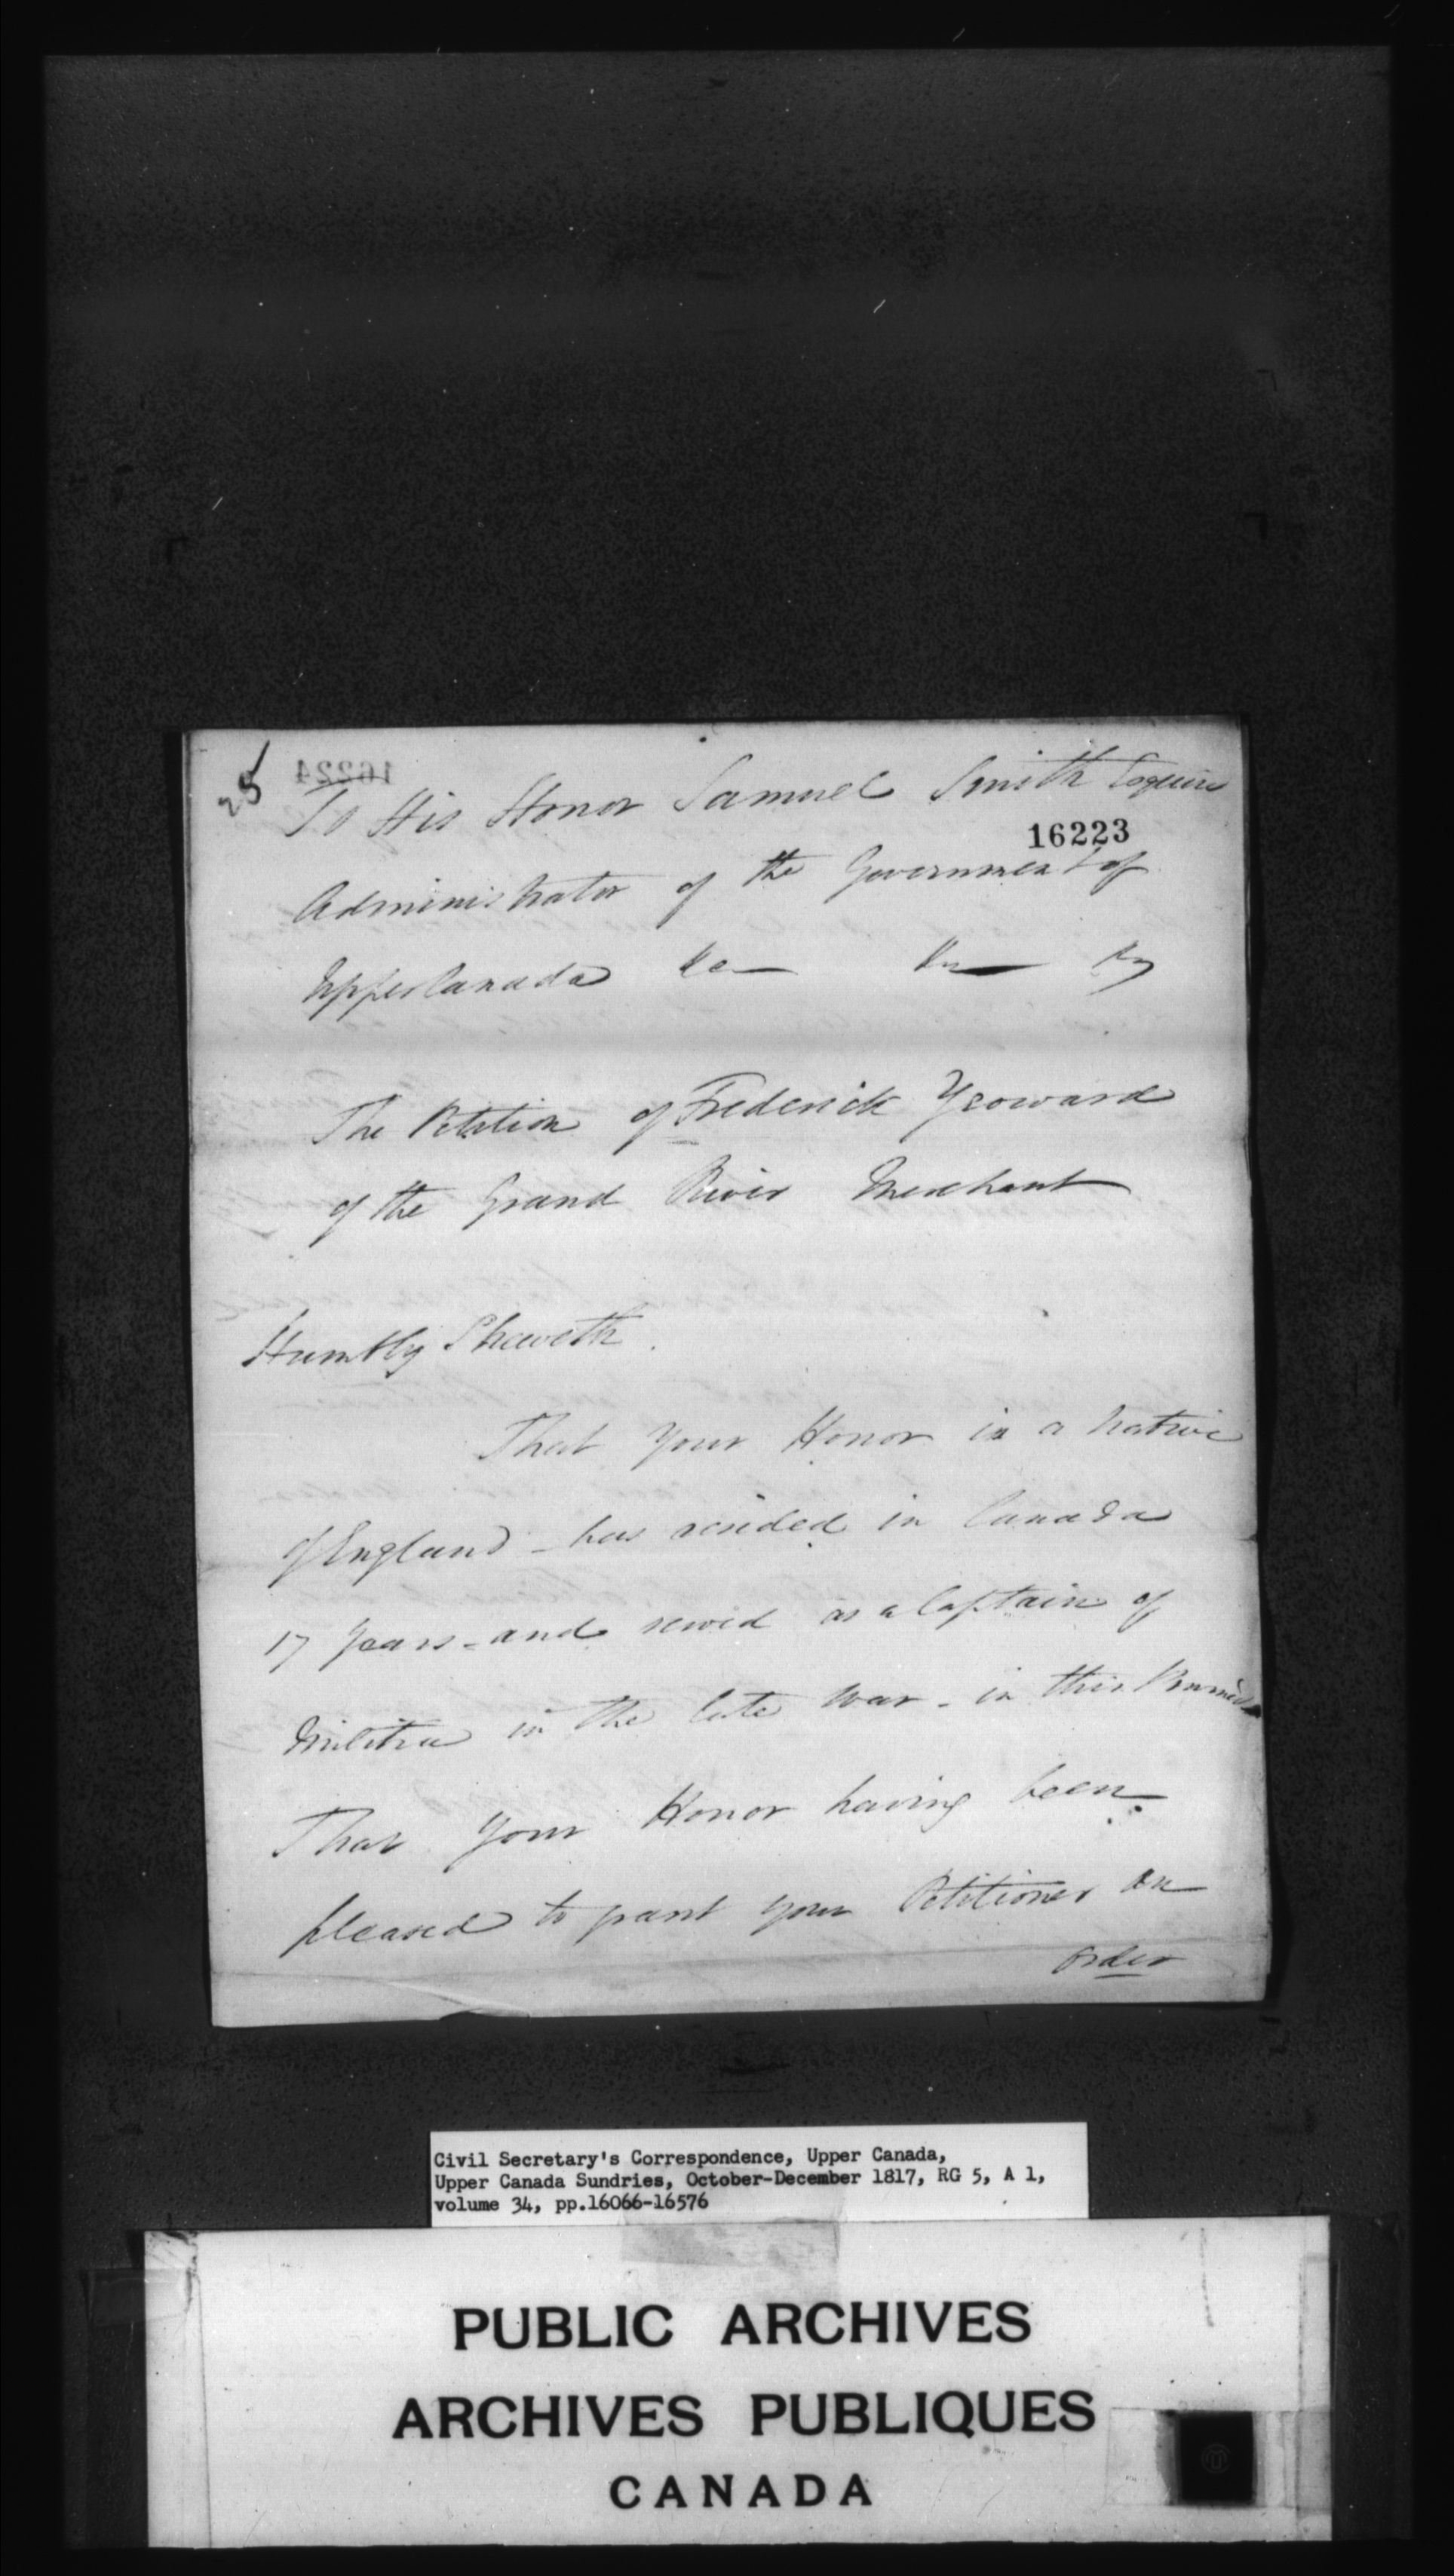 25
16224
To His Honor Samuel Smith Esquire
16223
Administrator of the Government of
Upper Canada &c &c &c
The Petition of Frederick Yeoward
of the Grand River Merchant
Humbly Sheweth.
That Your Honor is a native
of England - has resided in Canada
17 Years - and served as a Captain of
Militia in the late War - in this Province
That Your Honor having been
pleased to grant your Petitioner an
order
Civil Secretary's Correspondence, Upper Canada,
Upper Canada Sundries, October-December 1817, RG 5, A 1,
volume 34, pp.16066-16576
PUBLIC ARCHIVES
ARCHIVES PUBLIQUES
CANADA